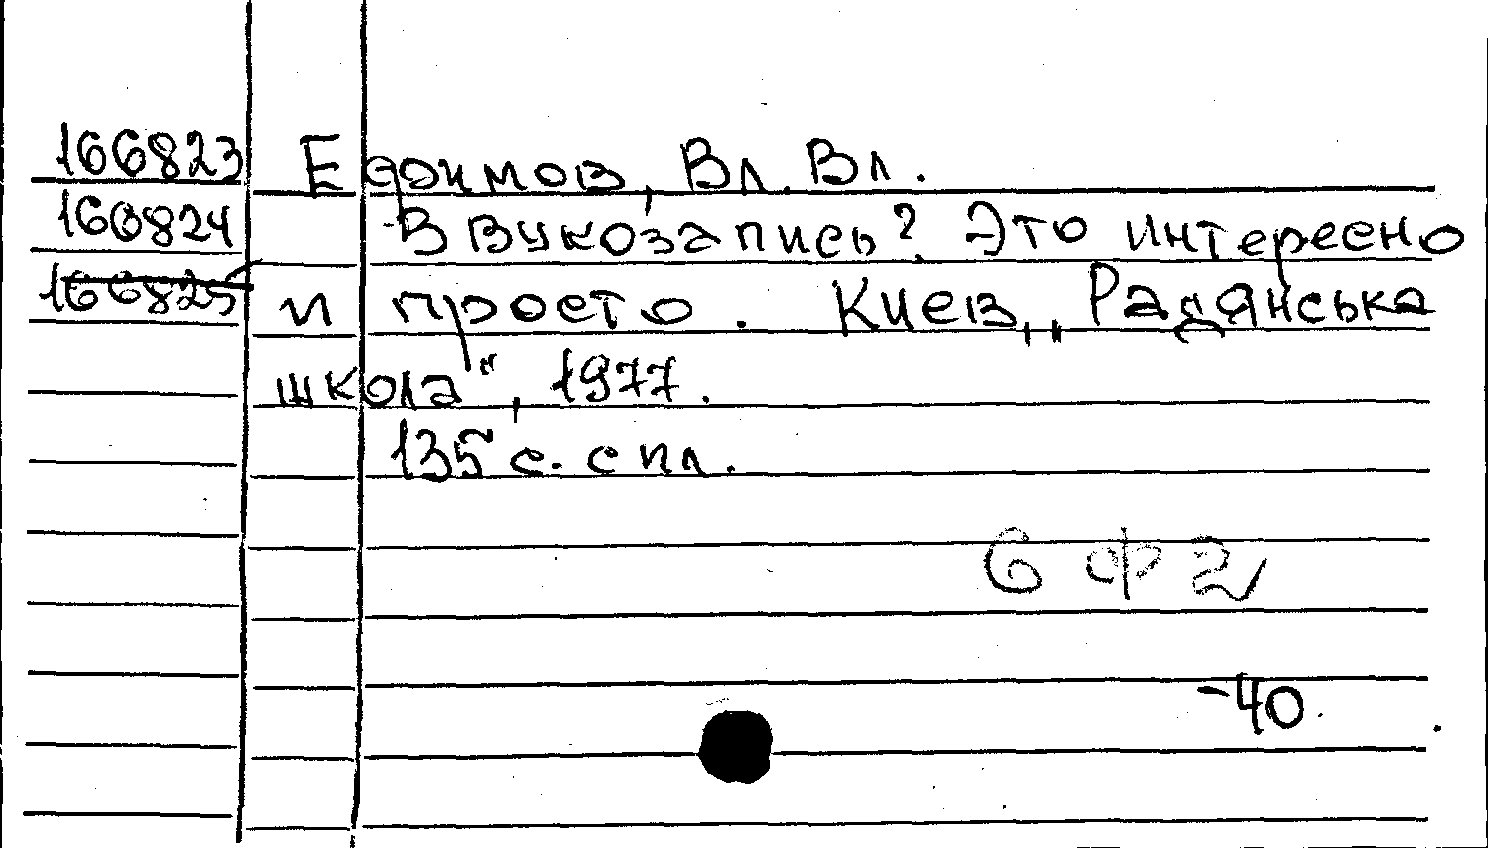 166823 Ефимов, Вл. Вл.
166824 Звукозапись? Это интересно
166825 и просто. Киев, „Радянська
школа", 1977.
135 с. с ил.
6Ф2
-40